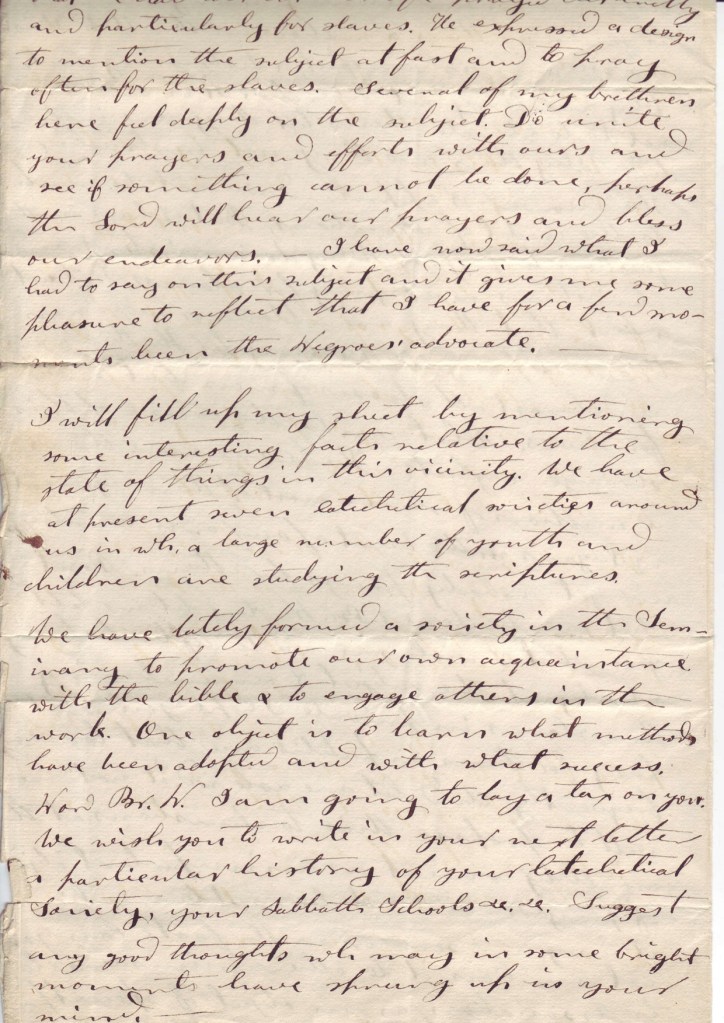 prayed earnestly
and particularly for slaves. He expressed a design
to mention the subject at fast and to pray
often for the slaves. Several of my brethren
here feel deeply on the subject. Do unite
your prayers and efforts with ours and
see if something cannot be done, perhaps
the Lord will hear our prayers and bless
our endeavors. — I have now said what I
had to say on this subject and it gives me some
pleasure to reflect that I have for a few mo-
ments been the Negroes' advocate. —
I will fill up my sheet by mentioning
some interesting facts relative to the
state of things in this vicinity. We have
at present seven catechetical societies around
us in wh. a large number of youth and
children are studying the scriptures.
We have lately formed a society in the Sem-
inary to promote our own acquaintance
with the bible & to engage others in the
work. One object is to learn what methods
have been adopted and with what success.
Br. W. I am going to lay a tax on you.
We wish you to write in your next letter
a particular history of your Catechetical
Society, your Sabbath Schools &c. &c. Suggest
any good thoughts wh may in some bright
moments have sprung up in your
mind. —